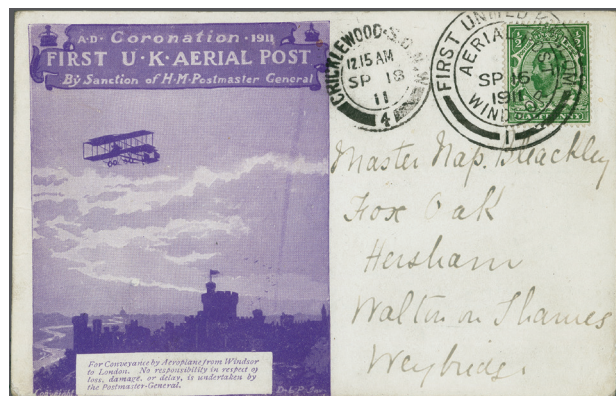 A·D· Coronation ·1911
FIRST U·K·AERIAL POST
By Sanction of H·M·Postmaster General
For Conveyance by Aeroplane from Windsor
to London. No responsibility in respect of
loss, damage, or delay, is undertaken by
the Postmaster-General.
Copyright
CRICKLEWOOD
12.15 AM
SP 18
11
4
FIRST UNITED KINGDOM
AERIAL POST
SP 16
1911
WINDSOR
1
HALFPENNY
Master Nap. Bleackley
Fox Oak
Hersham
Walton on Thames
Weybridge